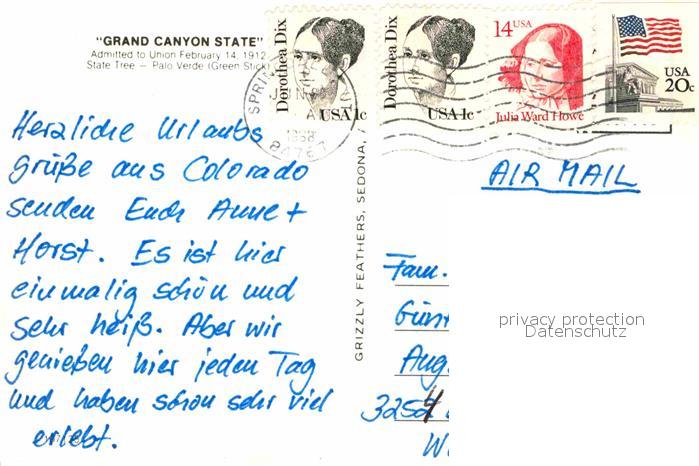 "GRAND CANYON STATE"
Admitted to Union February 14, 1912
State Tree — Palo Verde (Green Stick)
Herzliche Urlaubs
grüße aus Colorado
senden Euch Anne +
Horst. Es ist hier
einmalig schön und
sehr heiß. Aber wir
genießen hier jeden Tag
und haben schon sehr viel
erlebt.
GRIZZLY FEATHERS, SEDONA,
Dorothea Dix
USA 1c
Dorothea Dix
USA 1c
14 USA
Julia Ward Howe
USA
20c
1988
AIR MAIL
Fam.
Günt
Aug
3254
W
privacy protection
Datenschutz